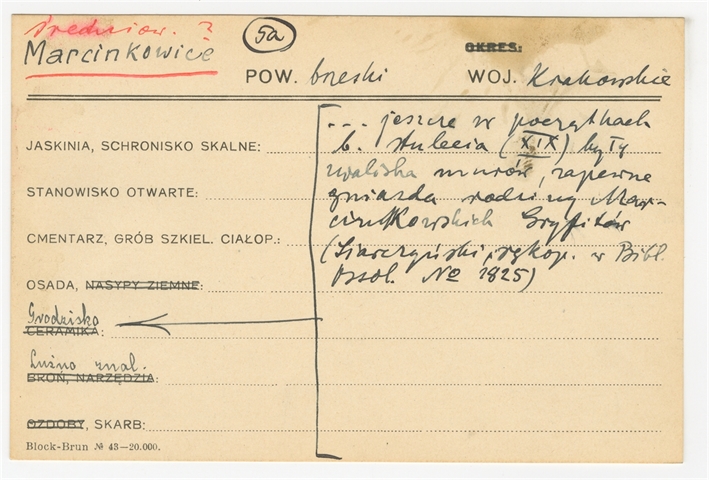 średniow. ?
Marcinkowice
5a
OKRES:
POW. brzeski
WOJ. Krakowskie
... jeszcze w początkach
b. stulecia (XIX) były
zwaliska murów, zapewne
gniazda rodziny Mar-
cinkowskich Gryfitów
(Siarczyński, rękop. w Bibl.
Ossol. № 1825)
JASKINIA, SCHRONISKO SKALNE:
STANOWISKO OTWARTE:
CMENTARZ, GRÓB SZKIEL. CIAŁOP.:
OSADA, NASYPY ZIEMNE:
Grodzisko
CERAMIKA:
Luźno znal.
BROŃ, NARZĘDZIA:
OZDOBY, SKARB:
Block-Brun № 43—20.000.